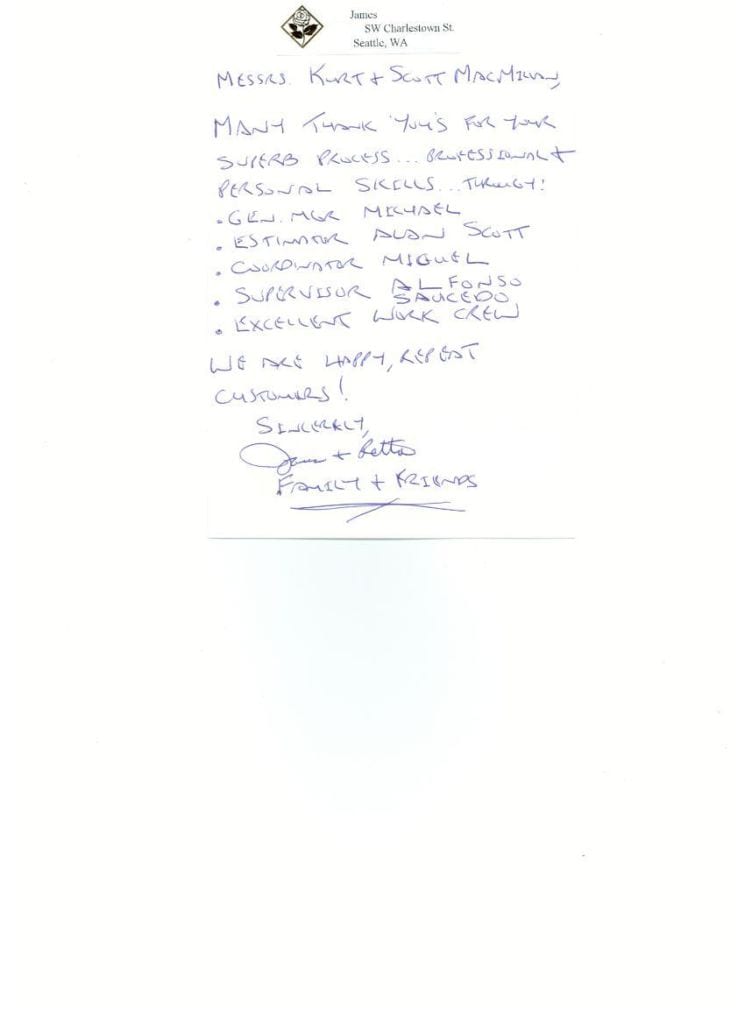 James
SW Charlestown St.
Seattle, WA
MESSRS. KURT + SCOTT MACMILLAN,
MANY THANK YOU'S FOR YOUR
SUPERB PROCESS... PROFESSIONAL +
PERSONAL SKILLS...
• GEN. MGR MICHAEL
• ESTIMATOR ALAN SCOTT
• COORDINATOR MIGUEL
• SUPERVISOR ALFONSO
SAUCEDO,
• EXCELLENT WORK CREW
WE ARE HAPPY, REPEAT
CUSTOMERS!
SINCERELY,
+
FAMILY + FRIENDS